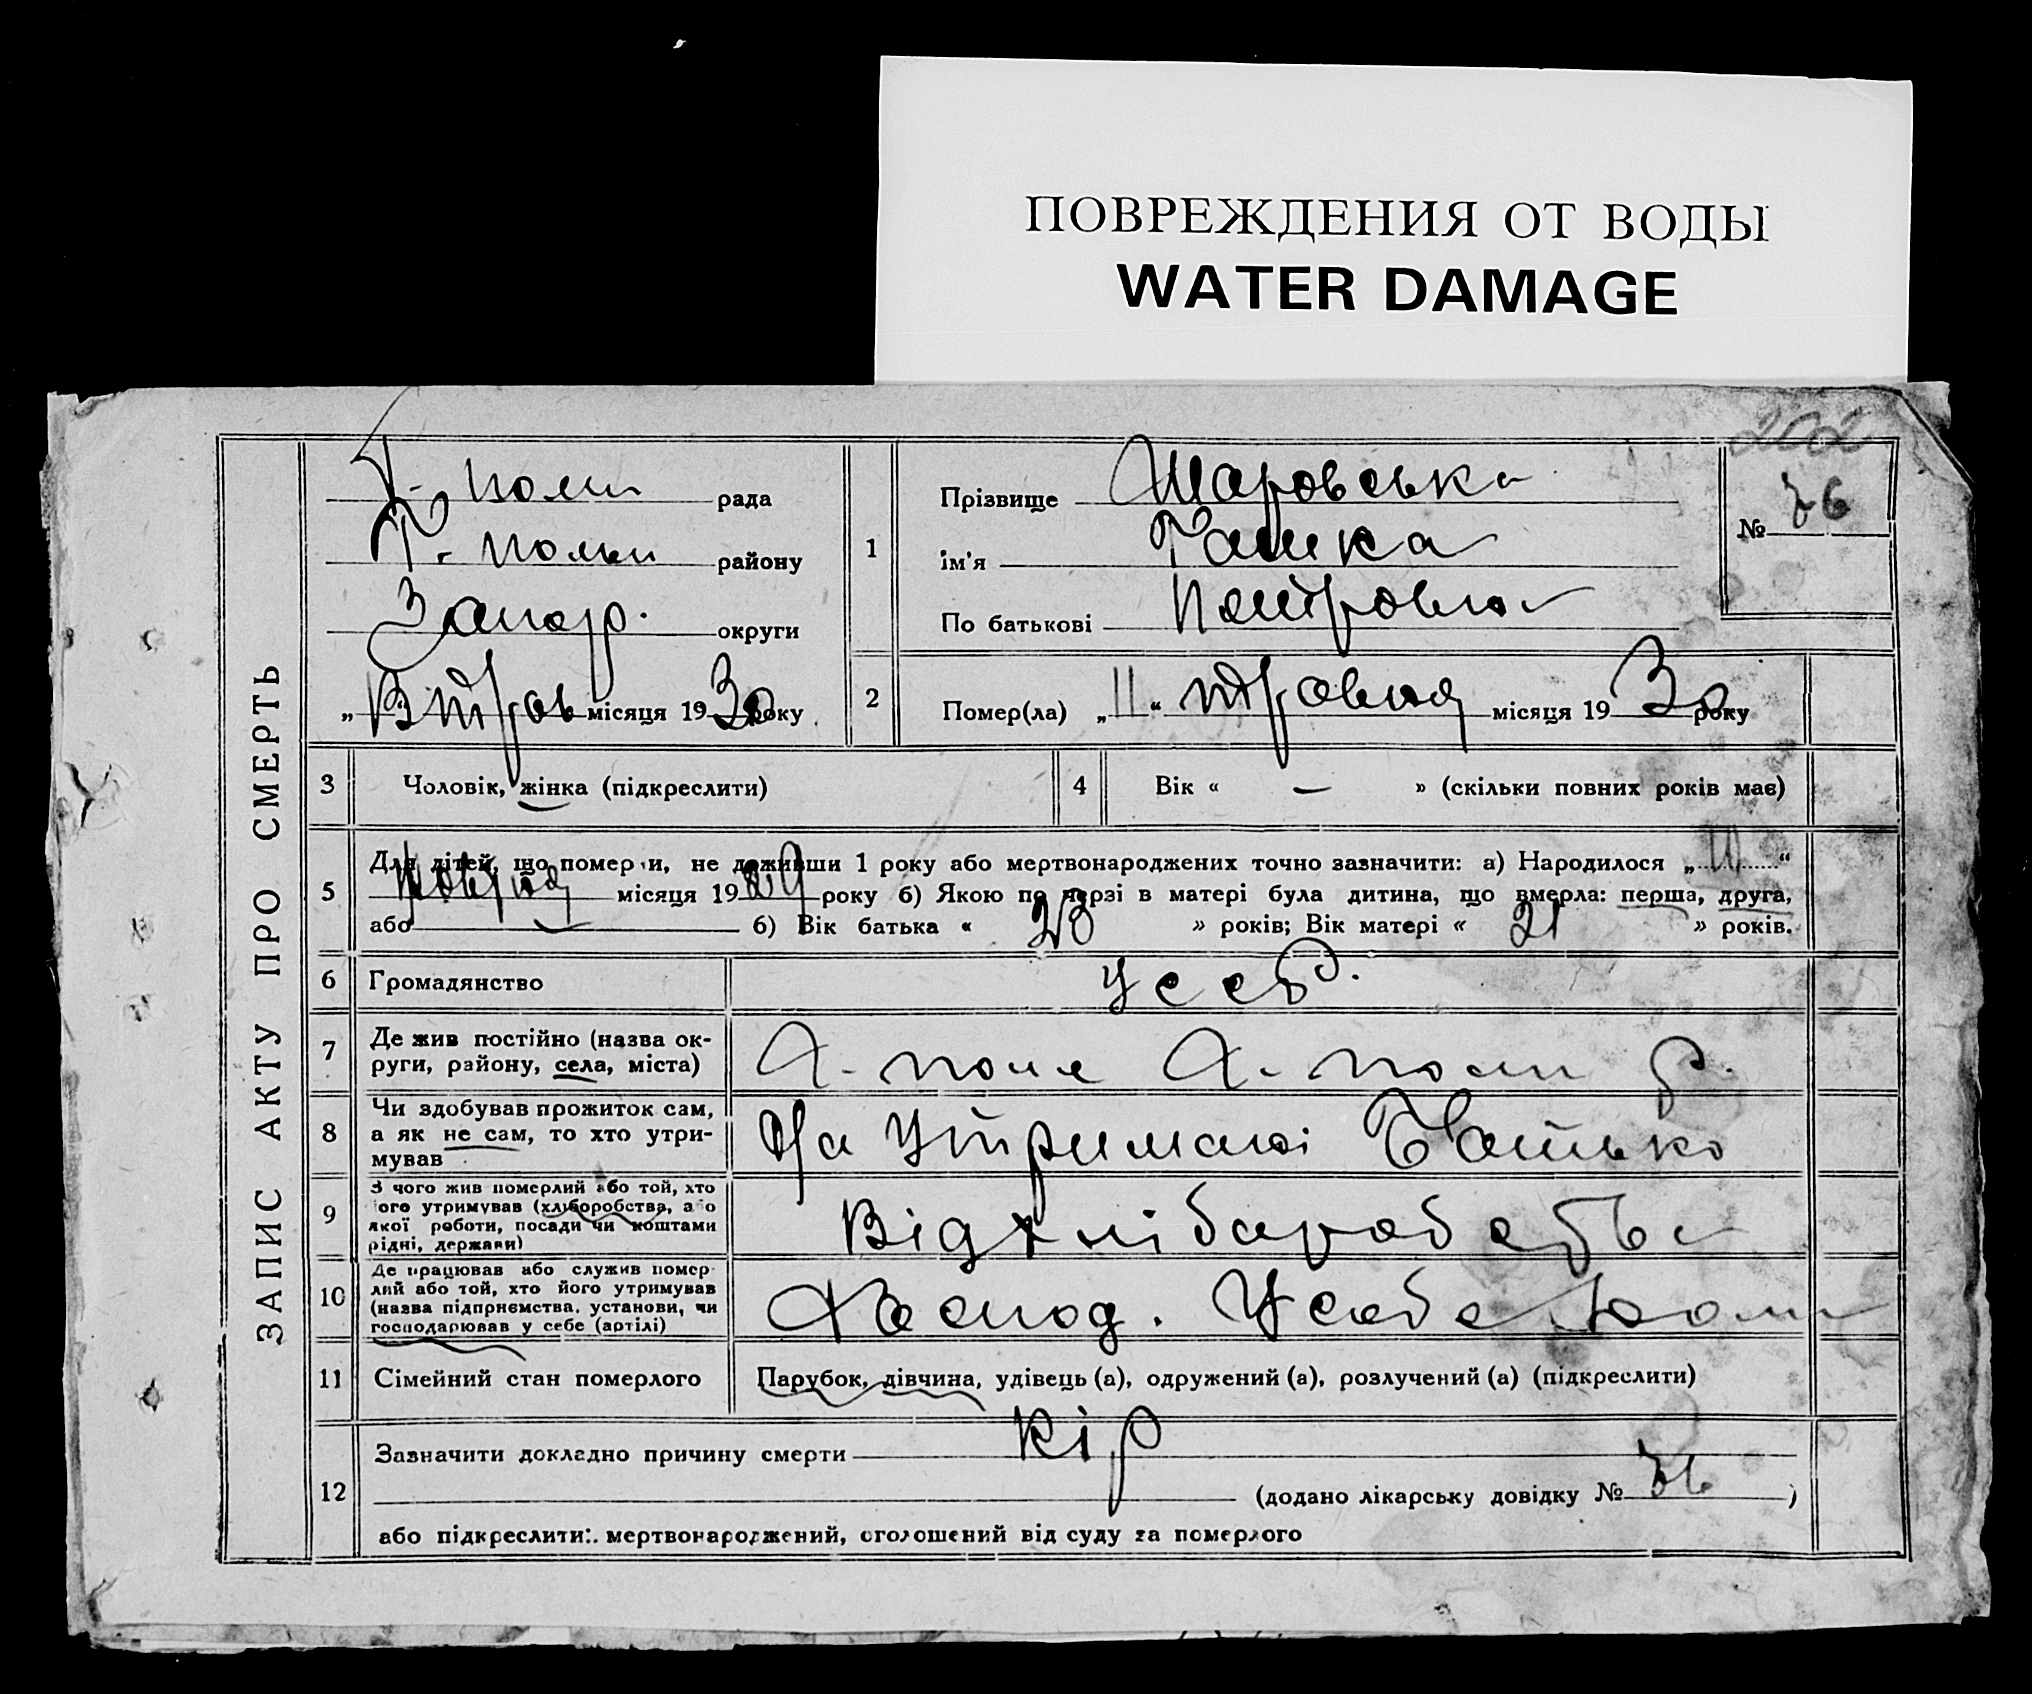 ПОВРЕЖДЕНИЯ ОТ ВОДЫ
WATER DAMAGE
202
ЗАПИС АКТУ ПРО СМЕРТЬ
рада
району
Запор. округи
„ місяця 1930 року
1
Прізвище Шаровська
ім'я Галька
По батькові Петровна
№ 76
2
Помер(ла) „11“ травня місяця 1930 року
3
Чоловік, жінка (підкреслити)
4
Вік « — » (скільки повних років має)
5
Для дітей, що померли, не доживши 1 року або мертвонароджених точно зазначити: а) Народилося „ “
жовтня місяця 1929 року б) Якою по черзі в матері була дитина, що вмерла: перша, друга,
або — б) Вік батька « 23 » років; Вік матері « 21 » років.
6
Громадянство
УССР.
7
Де жив постійно (назва ок-
руги, району, села, міста)
поле р.
8
Чи здобував прожиток сам,
а як не сам, то хто утри-
мував
На утримані Батько
9
З чого жив померлий або той, хто
його утримував (хліборобства, або
якої роботи, посади чи коштами
рідні, держави)
Від хліборобства
10
Де працював або служив помер-
лий або той, хто його утримував
(назва підприємства, установи, чи
господарював у себе (артілі)
Господ. У себе
11
Сімейний стан померлого
Парубок, дівчина, удівець (а), одружений (а), розлучений (а) (підкреслити)
12
Зазначити докладно причину смерти кір
(додано лікарську довідку № 76 )
або підкреслити: мертвонароджений, оголошений від суду за померлого